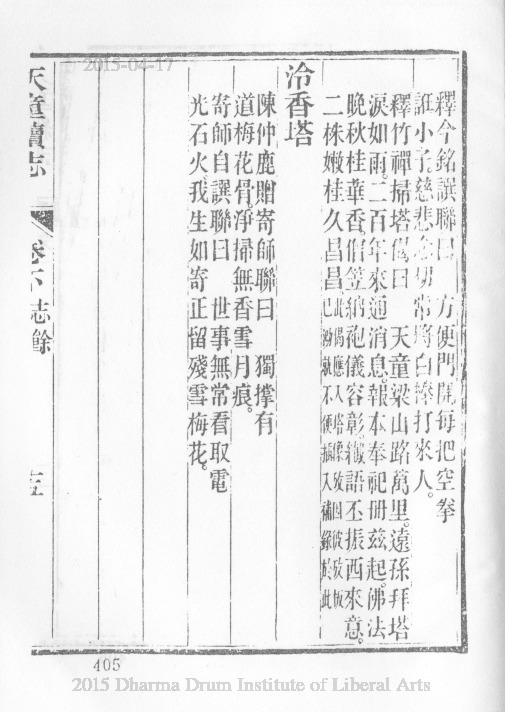 2015-04-17
釋今銘譔聯曰　方便門開每把空拳
誑小子慈悲念切常將白捧打來人。
釋竹禪掃塔偈曰　天童梁山路萬里。遠孫拜塔
淚如雨。二百年來通消息。報本奉祀冊茲起。佛法
晚秋桂華香。借笠衲袍儀容彰。纖語丕振西來意。
二株嫩桂久昌昌此偈應入塔像攷因彼攷板
已渤就不便插入補錄於此
冷香塔
陳仲鹿贈寄師聯曰　獨撐有
道梅花骨淨掃無香雪月痕。
寄師自譔聯曰　世事無常看取電
光石火我生如寄正留殘雪梅花。
天童續志
卷下　志餘
五
405
2015 Dharma Drum Institute of Liberal Arts